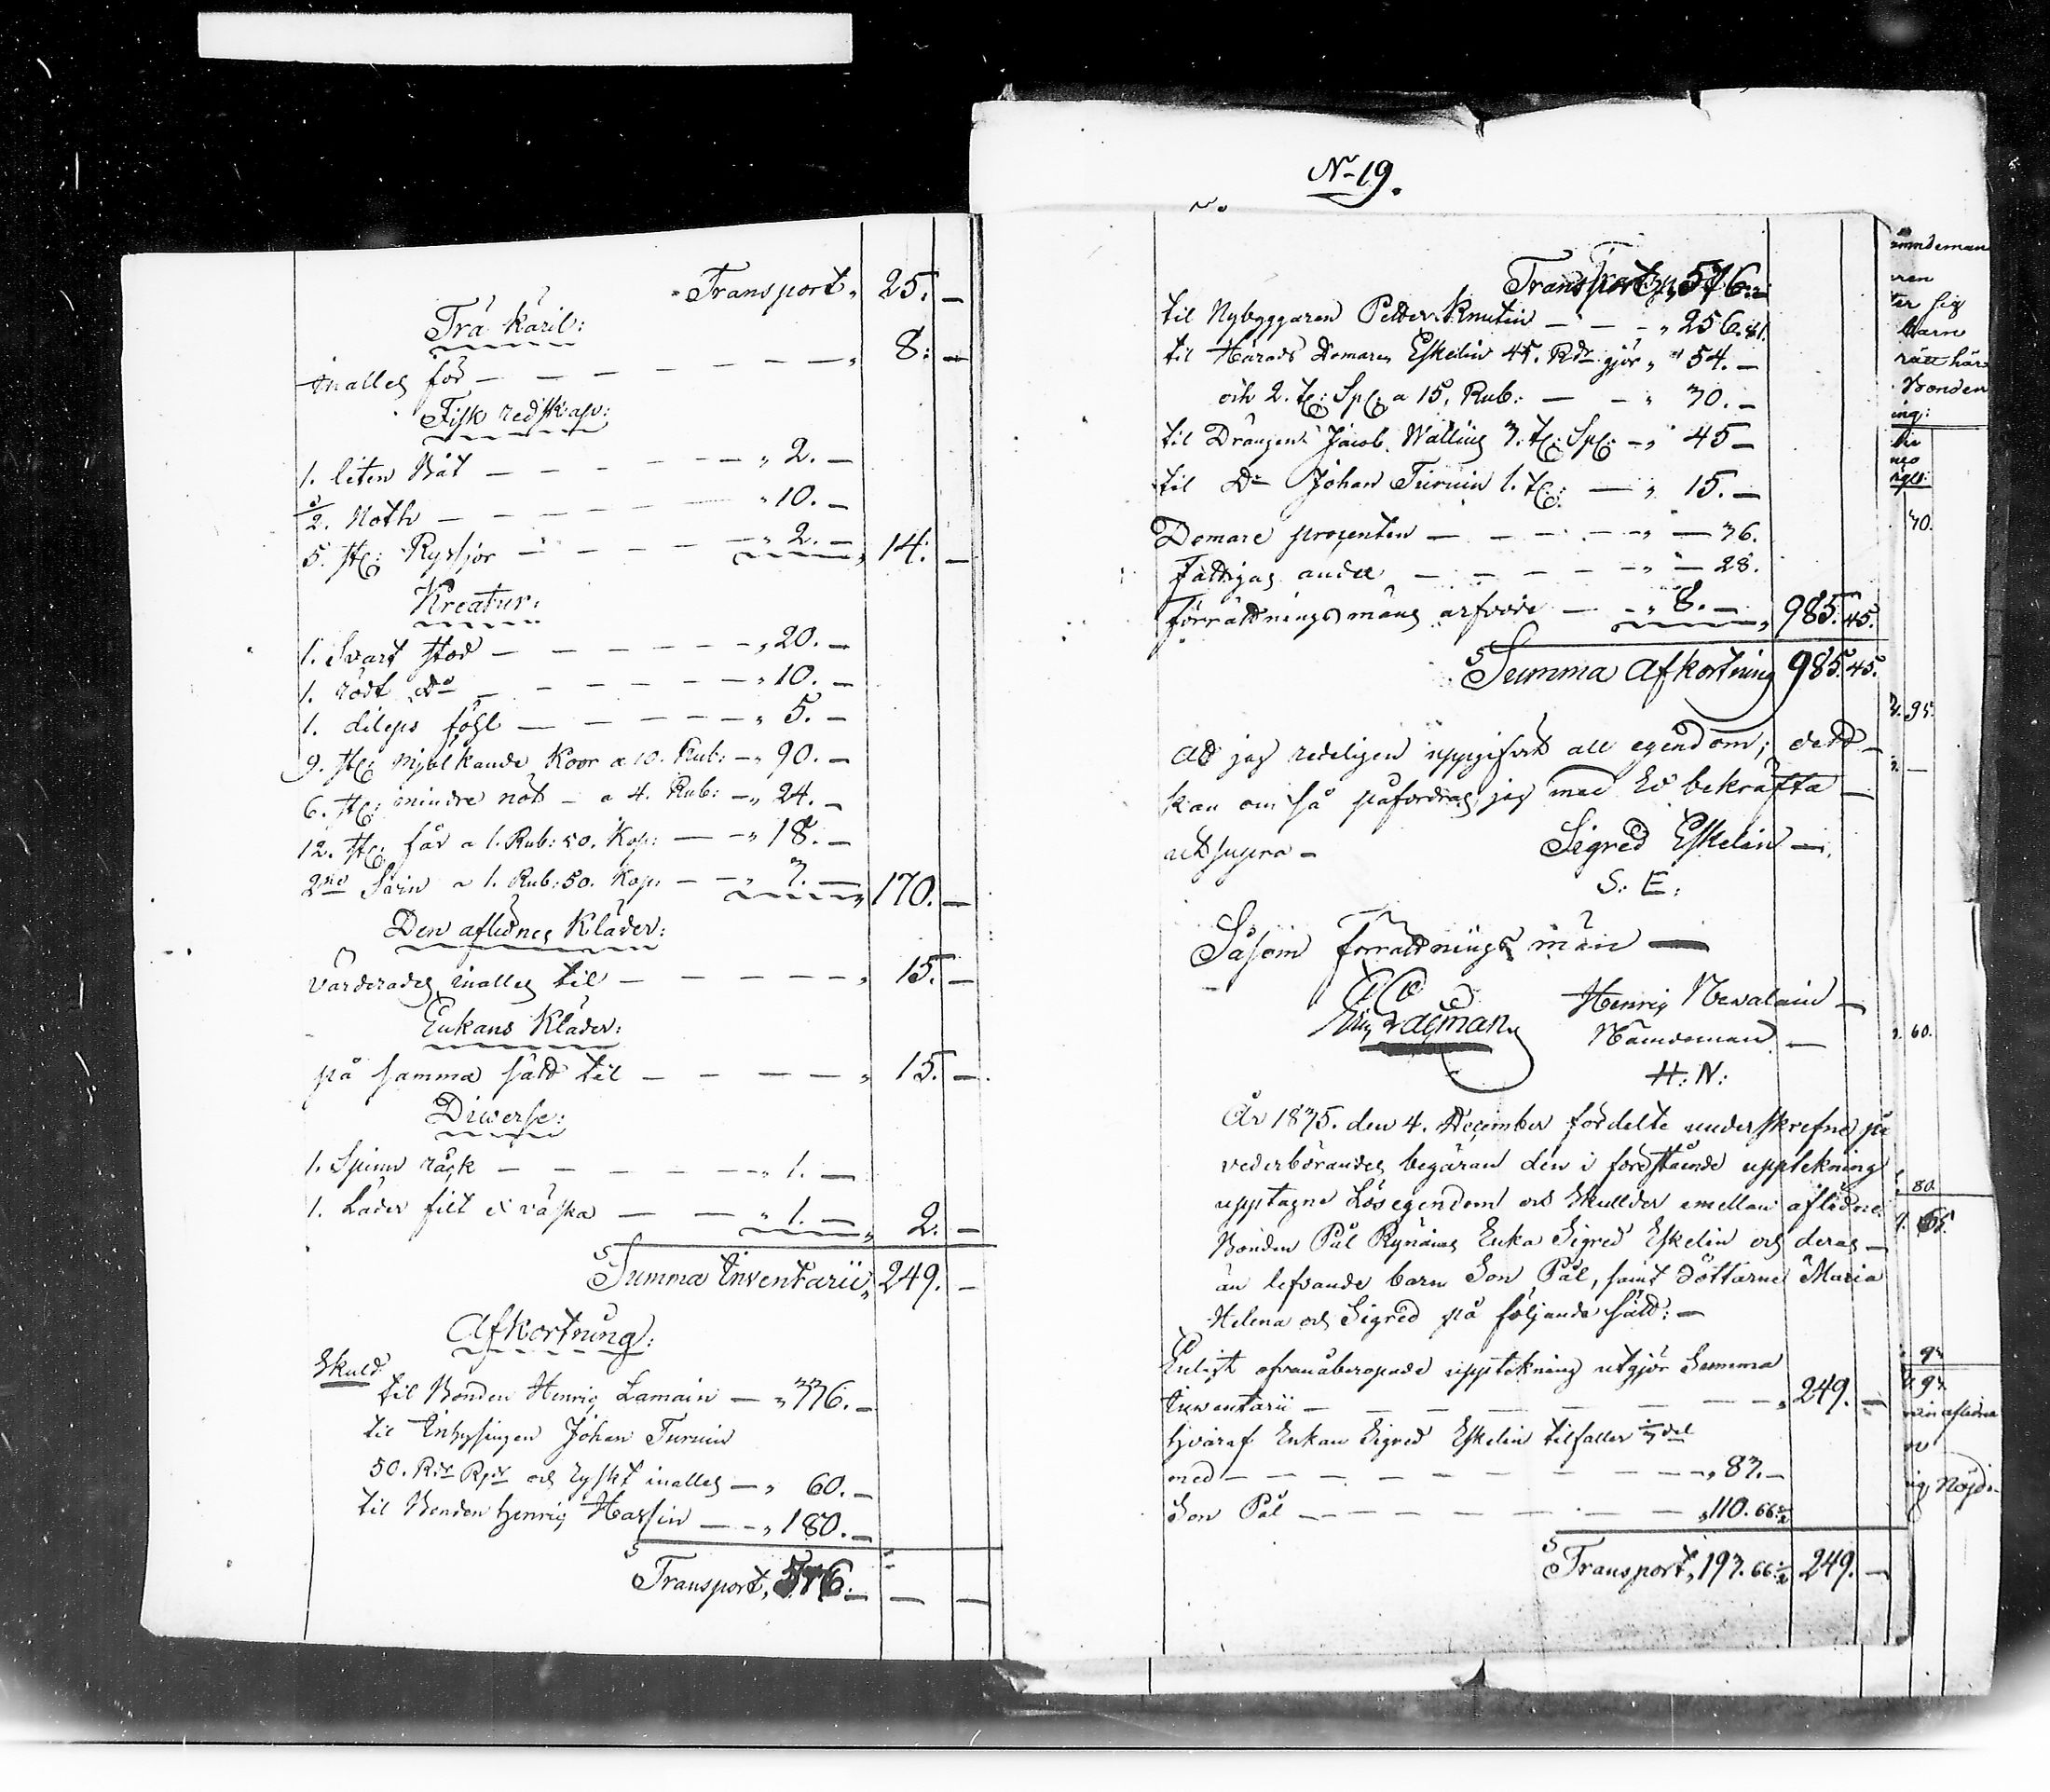 Transport „ 25. —
Trä käril:
inalles för — — — — — — — „ 8: —
Fisk redskap:
1. liten Båt — — — — — „ 2. —
2. Noth — — — — — — „ 10. —
5. st: Ryssjor — — — — — „ 2. — „ 14. —
Kreatur:
1. Svart stod — — — — — „ 20. —
1. rödt do — — — — — — „ 10. —
1. föhl — — — — — „ 5. —
9. st: mjölkande Koor a 10. Rub: — „ 90. —
6. st: mindre nöt — a 4. Rub: — „ 24. —
12. st: får a 1. Rub: 50. Kop: — — „ 18. —
2ne Svin a 1. Rub: 50. Kop: — — „ 3. — „ 170. —
Den aflednes Kläder:
värderades inalles til — — — — — „ 15. —
Enkans Kläder:
på samma sätt til — — — — „ 15. —
Diverse:
1. Spinn råck — — — — — — „ 1. —
1. Läder filt & väska — — „ 1. — „ 2. —
Summa Inventarii „ 249. —
Afkortning:
Skuld
til Bonden Henric Lamain — „ 336. —
til Inhysingen Johan Turuin
50. Rdr Rgs och inalles — „ 60. —
til Bonden Henric Hassin — — „ 180. —
Transport „ 576. — — —
No 19.
Transport „ 576. —
til Nybyggaren Petter Knutin — — — „ 256. 81.
til Härads Domaren Eskelin 45. Rdr gjör „ 54. —
och 2. t: Sp: a 15. Rub: — — „ 30. —
til Drängen Jacob Wallius 3. t: Sp: — „ 45 —
til Do Johan Turuin 1. t: — „ 15. —
Domare procenten — — — — — „ — 36.
Fattigas andel — — — — — „ — 28.
Förrättnings mäns arfvode — — „ 8. — „ 985. 45.
Summa Afkortning 985. 45.
At jag redeligen uppgifvit all egendom; dett —
kan om så påfordras, jag med Ed bekräfta —
ut supra — Sigred Eskelin —
S: E:
Såsom Förrättnings män —
Henric Nevalain —
Nämdeman —
H: N:
År 1835. den 4. December fördelte underskrefne på
vederbörandes begäran den i förestående upptekning
upptagne Lösegendom och Skullder emellan aflidne
Bonden Pål Rynänes Enka Sigred Eskelin och deras —
än lefvande barn Son Pål, samt döttarne Maria
Helena och Sigred på följande sätt: —
Enligt ofvanåberopade upptekning utgjör Summa
Inventarii — — — — — — — — „ 249. —
hvaraf Enkan Sigred Eskelin tilfaller 1/3 del
med — — — — — — — — — „ 83. —
Son Pål — — — — — — — — „ 110. 66 2/3
Transport „ 193. 66 2/3 249. —
barn
rätt här
Bonden
30.
95.
60.
80.
65.
93
93.
aflidna
nöjd